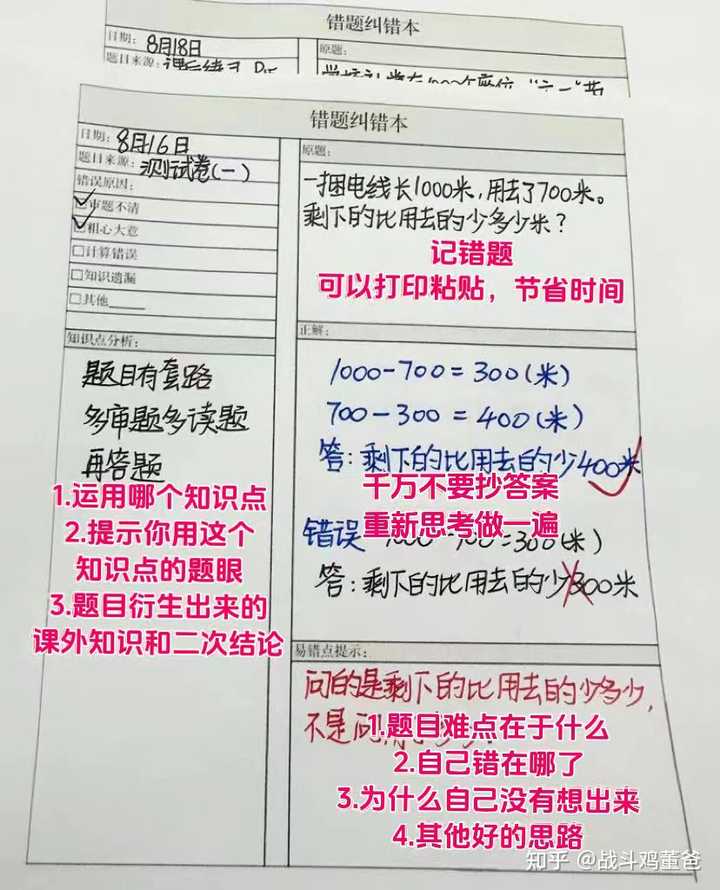 错题纠错本
日期: 8月18日
题目来源:
原题:
错题纠错本
日期: 8月16日
题目来源: 测试卷(一)
错误原因:
审题不清
粗心大意
计算错误
知识遗漏
其他
原题:
一捆电线长1000米,用去了700米。
剩下的比用去的少多少米?
记错题
可以打印粘贴,节省时间
知识点分析:
题目有套路
多审题多读题
再答题
1.运用哪个知识点
2.提示你用这个
知识点的题眼
3.题目衍生出来的
课外知识和二次结论
正解:
1000-700=300(米)
700-300=400(米)
答:剩下的比用去的少400米
千万不要抄答案
重新思考做一遍
错误
=300(米)
答:剩下的比用去的少300米
易错点提示:
问的是剩下的比用去的少多少,
不是问
1.题目难点在于什么
2.自己错在哪了
3.为什么自己没有想出来
4.其他好的思路
知乎 @战斗鸡董爸